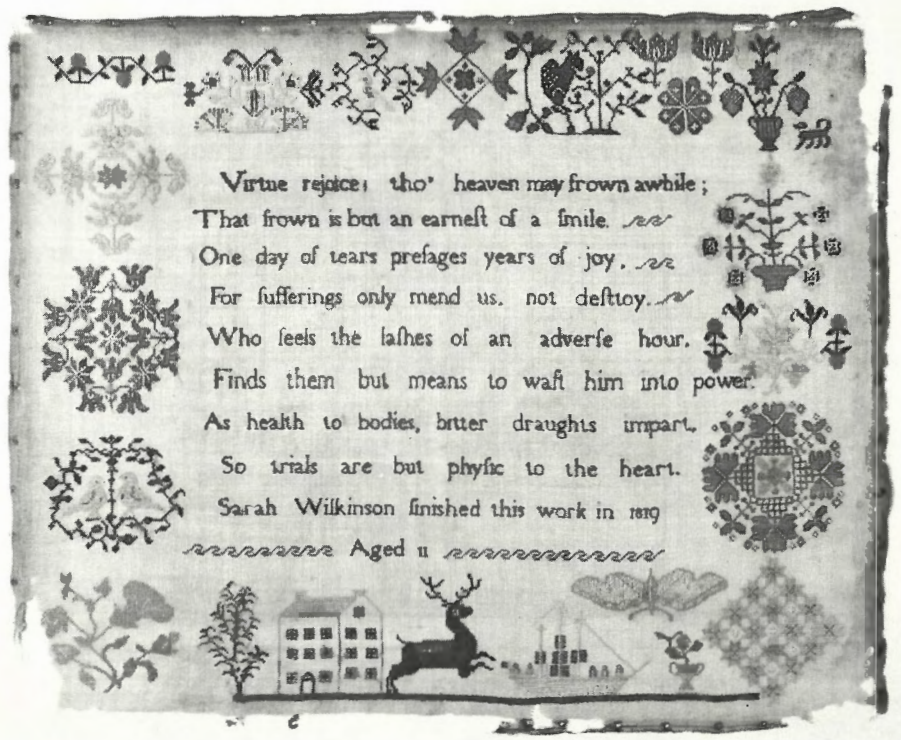 Virtue rejoice; tho' heaven may frown awhile;
That frown is but an earneſt of a ſmile.
One day of tears preſages years of joy,
For ſufferings only mend us, not deſtroy.
Who feels the laſhes of an adverſe hour,
Finds them but means to waft him into power.
As health to bodies, bitter draughts impart,
So trials are but phyſic to the heart.
Sarah Wilkinson finished this work in 1819
Aged 11